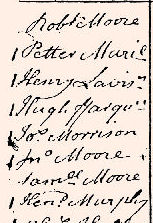 Robt Moore
1 Petter Muri
1 Henry Lavis
1 Hugh
1 Jos Morrison
1 Jno Moore
1 Samll Moore
1 Henry Murphy